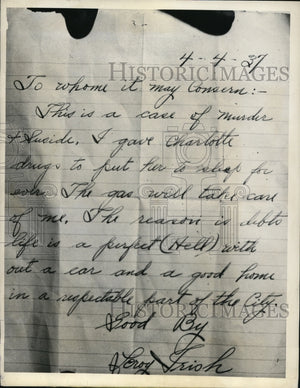 4-4-37
To whome it may Consern:-
This is a case of murder
& Suside. I gave Charlotte
drugs to put her to sleep for
ever. The gas will take care
of me. The reason is debts
life is a perfect (Hell) with
out a car and a good home
in a respectable part of the City.
Good By
Leroy Trish
HISTORIC IMAGES
HISTORIC IMAGES
HISTORIC IMAGES